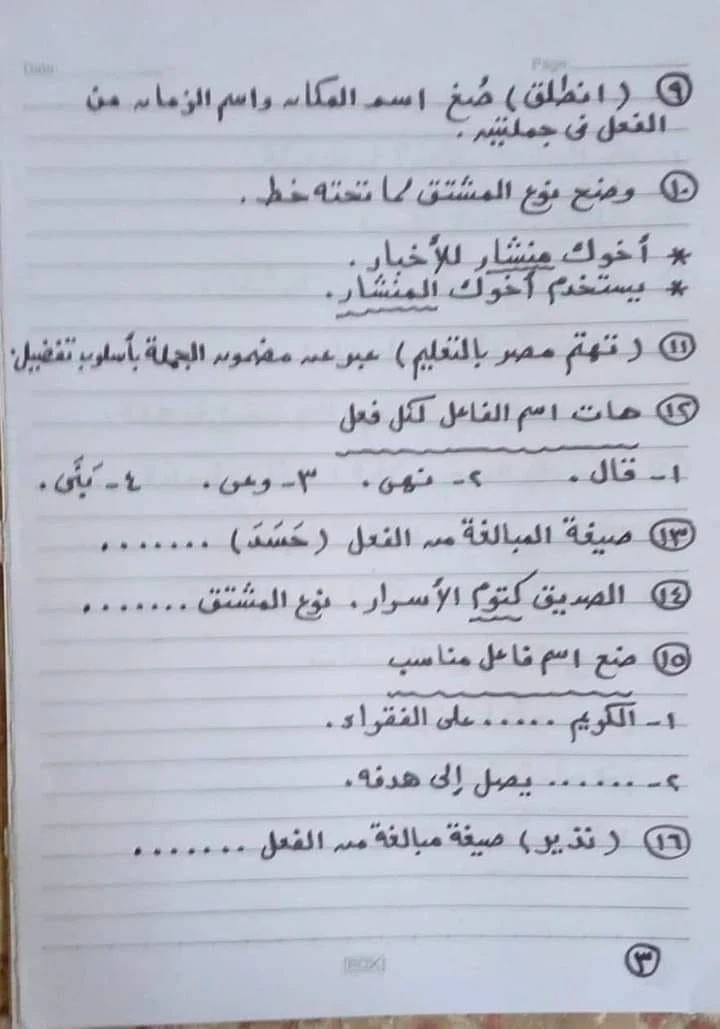 Date:
Page:
٩ ( انطلق ) صُغ اسم المكان واسم الزمان من
الفعل فى جملتين .
١٠ وضح نوع المشتق لما تحته خط .
* أخوك منشار للأخبار .
* يستخدم أخوك المنشار .
١١ ( تهتم مصر بالتعليم ) عبر عن مضمون الجملة بأسلوب تفضيل .
١٢ هات اسم الفاعل لكل فعل
١- قال . ٢- نهى . ٣- وعى . ٤- بَنَّى .
١٣ صيغة المبالغة من الفعل ( حَسَدَ ) .......
١٤ الصديق كتوم الأسرار . نوع المشتق .......
١٥ ضع اسم فاعل مناسب
١- الكريم ..... على الفقراء .
٢- ....... يصل إلى هدفه .
١٦ ( نذير ) صيغة مبالغة من الفعل .......
ROX
٣